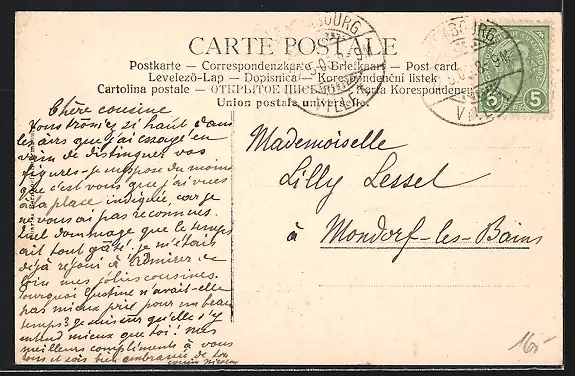 CARTE POSTALE
Postkarte — Correspondenzkarte — Briefkaart — Post card
Levelezö-Lap — Dopisnica — Korespondenční listek
Cartolina postale — ОТКРЫТОЕ ПИСЬМО — Karta Korespondencyjna
Union postale universelle.
5 5
VILLE
VILLE
Chère cousine
Vous trôniez si haut dans
les airs que j'ai essayé en
vain de distinguer vos
figures. Je suppose du moins
que c'est vous que j'ai vues
à la place indiquée, car je
ne vous ai pas reconnues.
Quel dommage que le temps
ait tout gâté! je m'étais
déjà réjoui à admirer de
loin mes jolies cousines.
Pourquoi Justine n'avait-elle
pas mieux prié pour un beau
temps? Je suis sûr qu'elle s'y
entend mieux que toi! mes
meilleurs compliments à vous
tous et
Mademoiselle
Lilly Lessel
à Mondorf-les-Bains
16.-